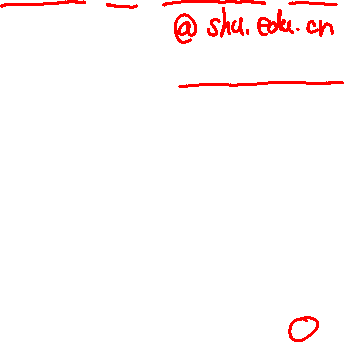 @ shu.edu.cn